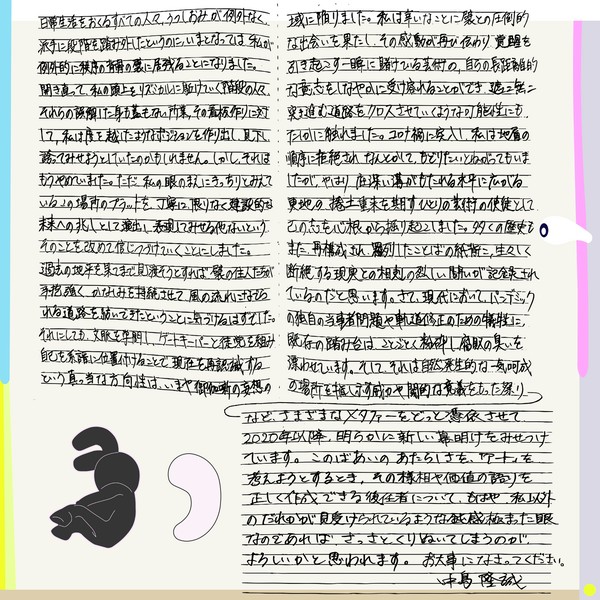 日常生活をおくるすべての人々、うつしおみが例外なく、
派手に段階を踏み外したというのに、いまとなっては私が
例外的に秩序の有用の裏に居残ることになりました。
開き直って、私の頭上をリズミカルに駆けていく階段の人々、
それらの誤解した身も蓋もない所業、その看板作りに対
して、私は度を越したようなポジションを作り出し、見下し
踏んでみせようとしていたのかもしれません。しかし、それは
もうやめていました。ただ、私の眼のまえにきっちりとみえて
いるこの場所のプラットを、丁寧に、限りなく建設的な
未来への兆しとして演出し、表現してみせる他ないという
そのことを改めて信じつづけていくことにしました。
過去の地平を果てまで見渡そうとすれば、
手招強く、かなしみを持続させて、風の流れになぞら
れる道路を紡いできたということに気づけるはずでした。
それにしても、文脈を準明し、ゲートキーパーと徒党を組み
自己を系譜に位置付けることで、現在を再認識する
という真っ当な方向性は、いまや御伽噺の妄想の
域に限りました。私は幸いなことに襞との圧倒的
な出会いを果たし、その感動が再び伝わり、覚醒を
引き起こす一瞬に賭けている芸術の、自らの長距離的
な意志をしなやかに受け流れることができ、
突き進む道路をクロスさせていくような可能性にも
たしかに触れました。コロナ禍に突入し、私は地層の
順序に拒絶され、なんとかして、もどりたいとねがってもいま
したが、やはり、底深い溝がもたれる水平に広がる
更地の、捲土重来を期すひとりの芸術の使徒として
己の志を心根から掘り起こしました。多くの歴史も
また、再構成され、羅列したことばの紙折に、生々しく
断絶する現実との相剋の激しい闘いが記録され
ているのだと思います。さて、現代において、パンデミック
の独自の当事者問題や軌道修正のための犠牲に、
既存の踏み台は、ことごとく粉砕し腐敗の臭いを
漂わせています。そして、それは自然発生的な一気呵成
の場所を指し示す威力や闇的な意義をもった祭り
など、さまざまなメタファーをどっと憑依させて
2020年以降、明らかに新しい幕明けをみせつけ
ています。このばあいのあたらしさを、「アート」を
考えようとするとき、その様相や価値の語りを
正しく作成できる後任者について、もはや、私以外
のだれかが見受けられているような鈍感極まった眼
なのであれば、さっさとくりぬいてしまうのが、
よろしいかと思われます。お大事になさってください。
中島 隆誠